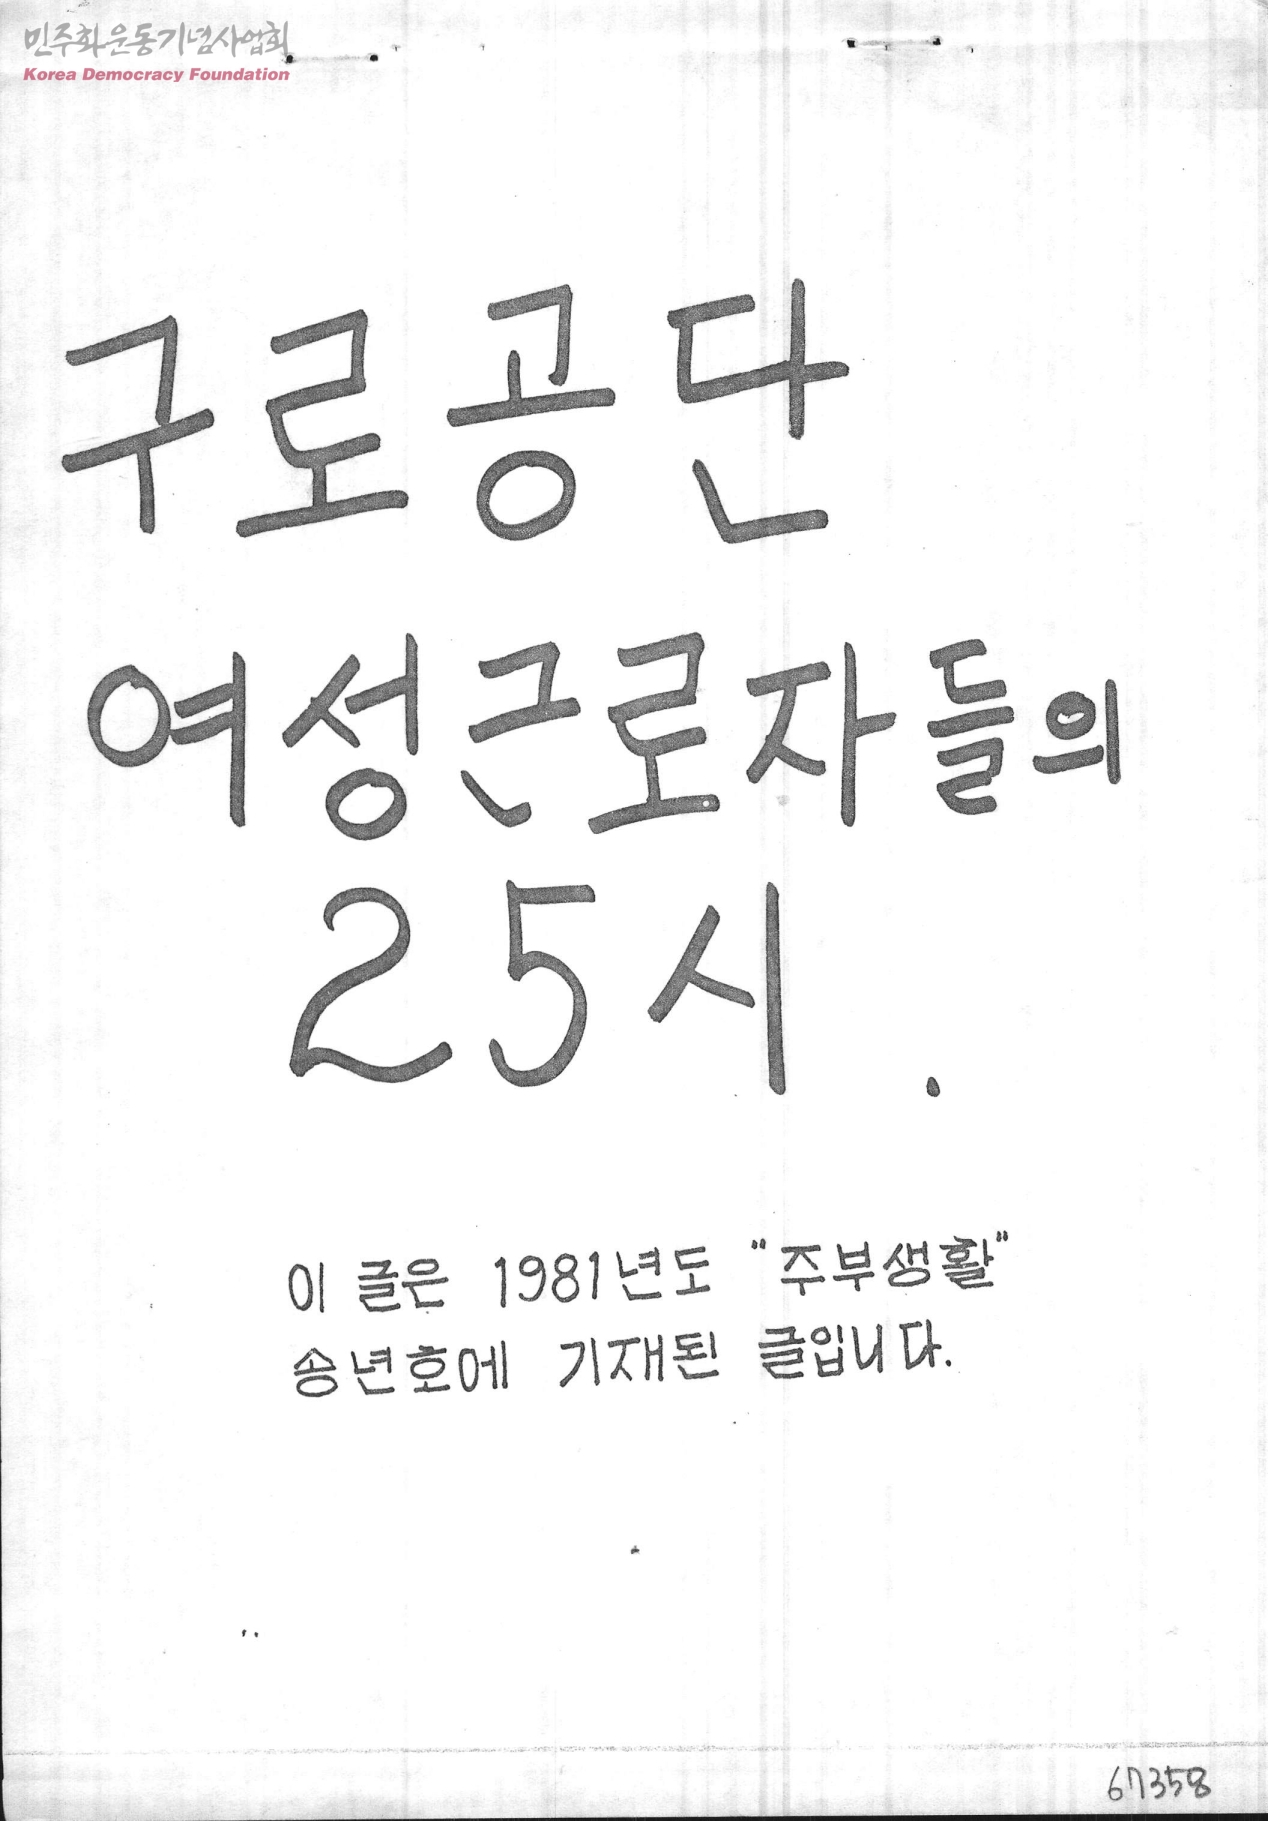 민주화운동기념사업회
Korea Democracy Foundation
구로공단
여성근로자들의
25시.
이 글은 1981년도 "주부생활"
송년호에 기재된 글입니다.
67358